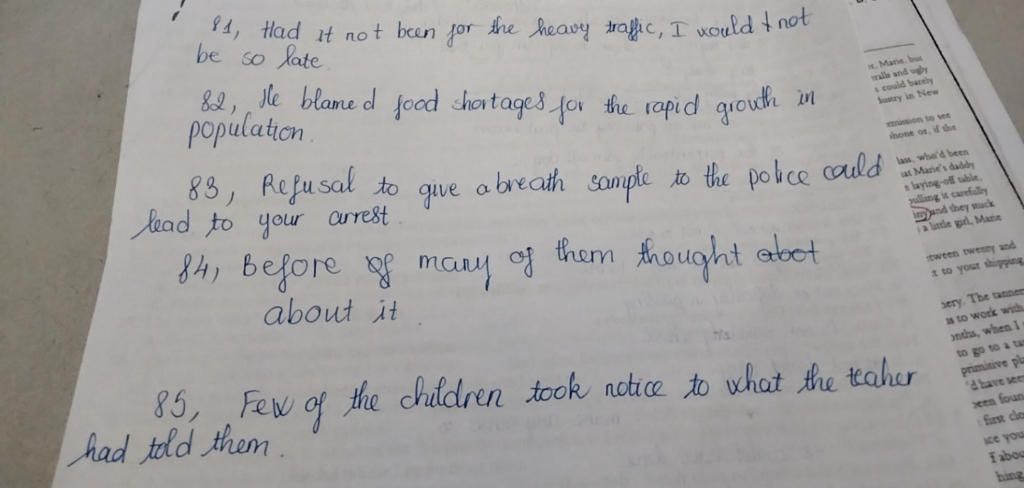 81, Had it not been for the heavy traffic, I would not
be so late
82, He blamed food shortages for the rapid growth in
population.
83, Refusal to give a breath sample to the police could
lead to your arrest.
84, Before of many of them thought abot
about it
85, Few of the children took notice to what the teaher
had told them.
r, Marie, but
walls and ugly
s could barely
lustry in New
ermission to see
shone or, if she
lass, who'd been
at Marie's daddy
s laying-off table,
pulling it carefully
and they stuck
a little girl, Marie
tween twenty and
t to your shipping
sery. The tanner
as to work with
onths, when I
to go to a tan
primitive pl
'd have see
een foun
first clo
ice you
f abou
hing